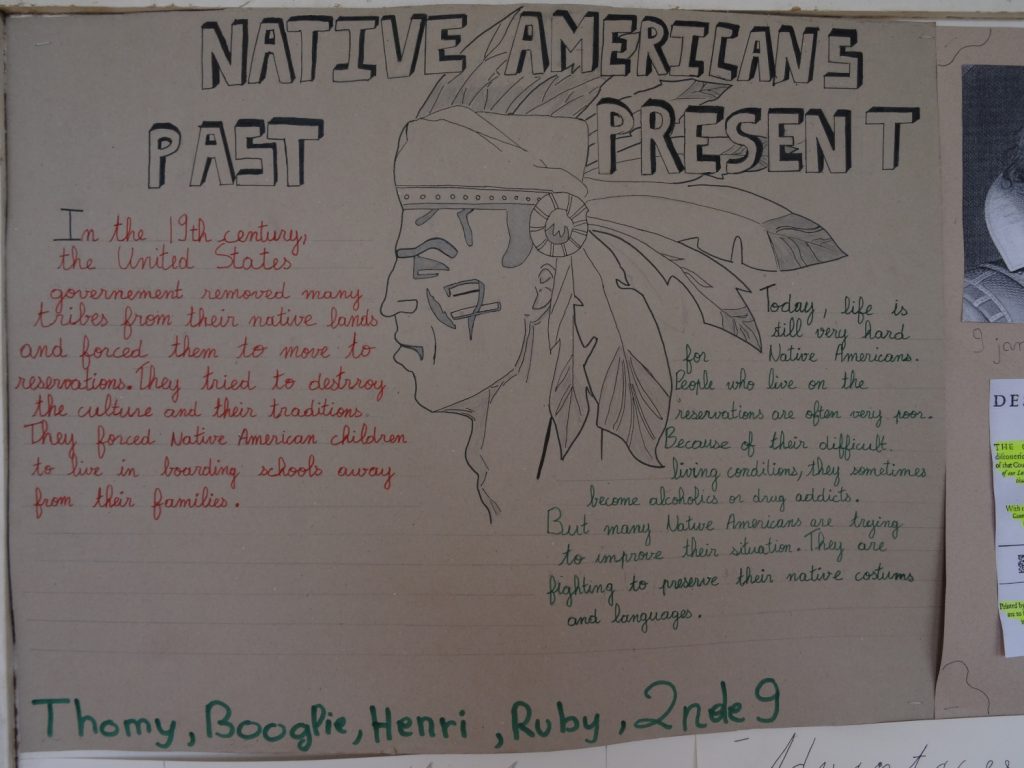 NATIVE AMERICANS
PAST
PRESENT
In the 19th century,
the United States
governement removed many
tribes from their native lands
and forced them to move to
reservations. They tried to destrroy
the culture and their traditions.
They forced Native American children
to live in boarding schools away
from their families.
Today, life is
still very hard
for Native Americans.
People who live on the
reservations are often very poor.
Because of their difficult
living conditions, they sometimes
become alcoholics or drug addicts.
But many Native Americans are trying
to improve their situation. They are
fighting to preserve their native costums
and languages.
Thomy, Booglie, Henri, Ruby, 2nde 9
9 jan
DE
THE